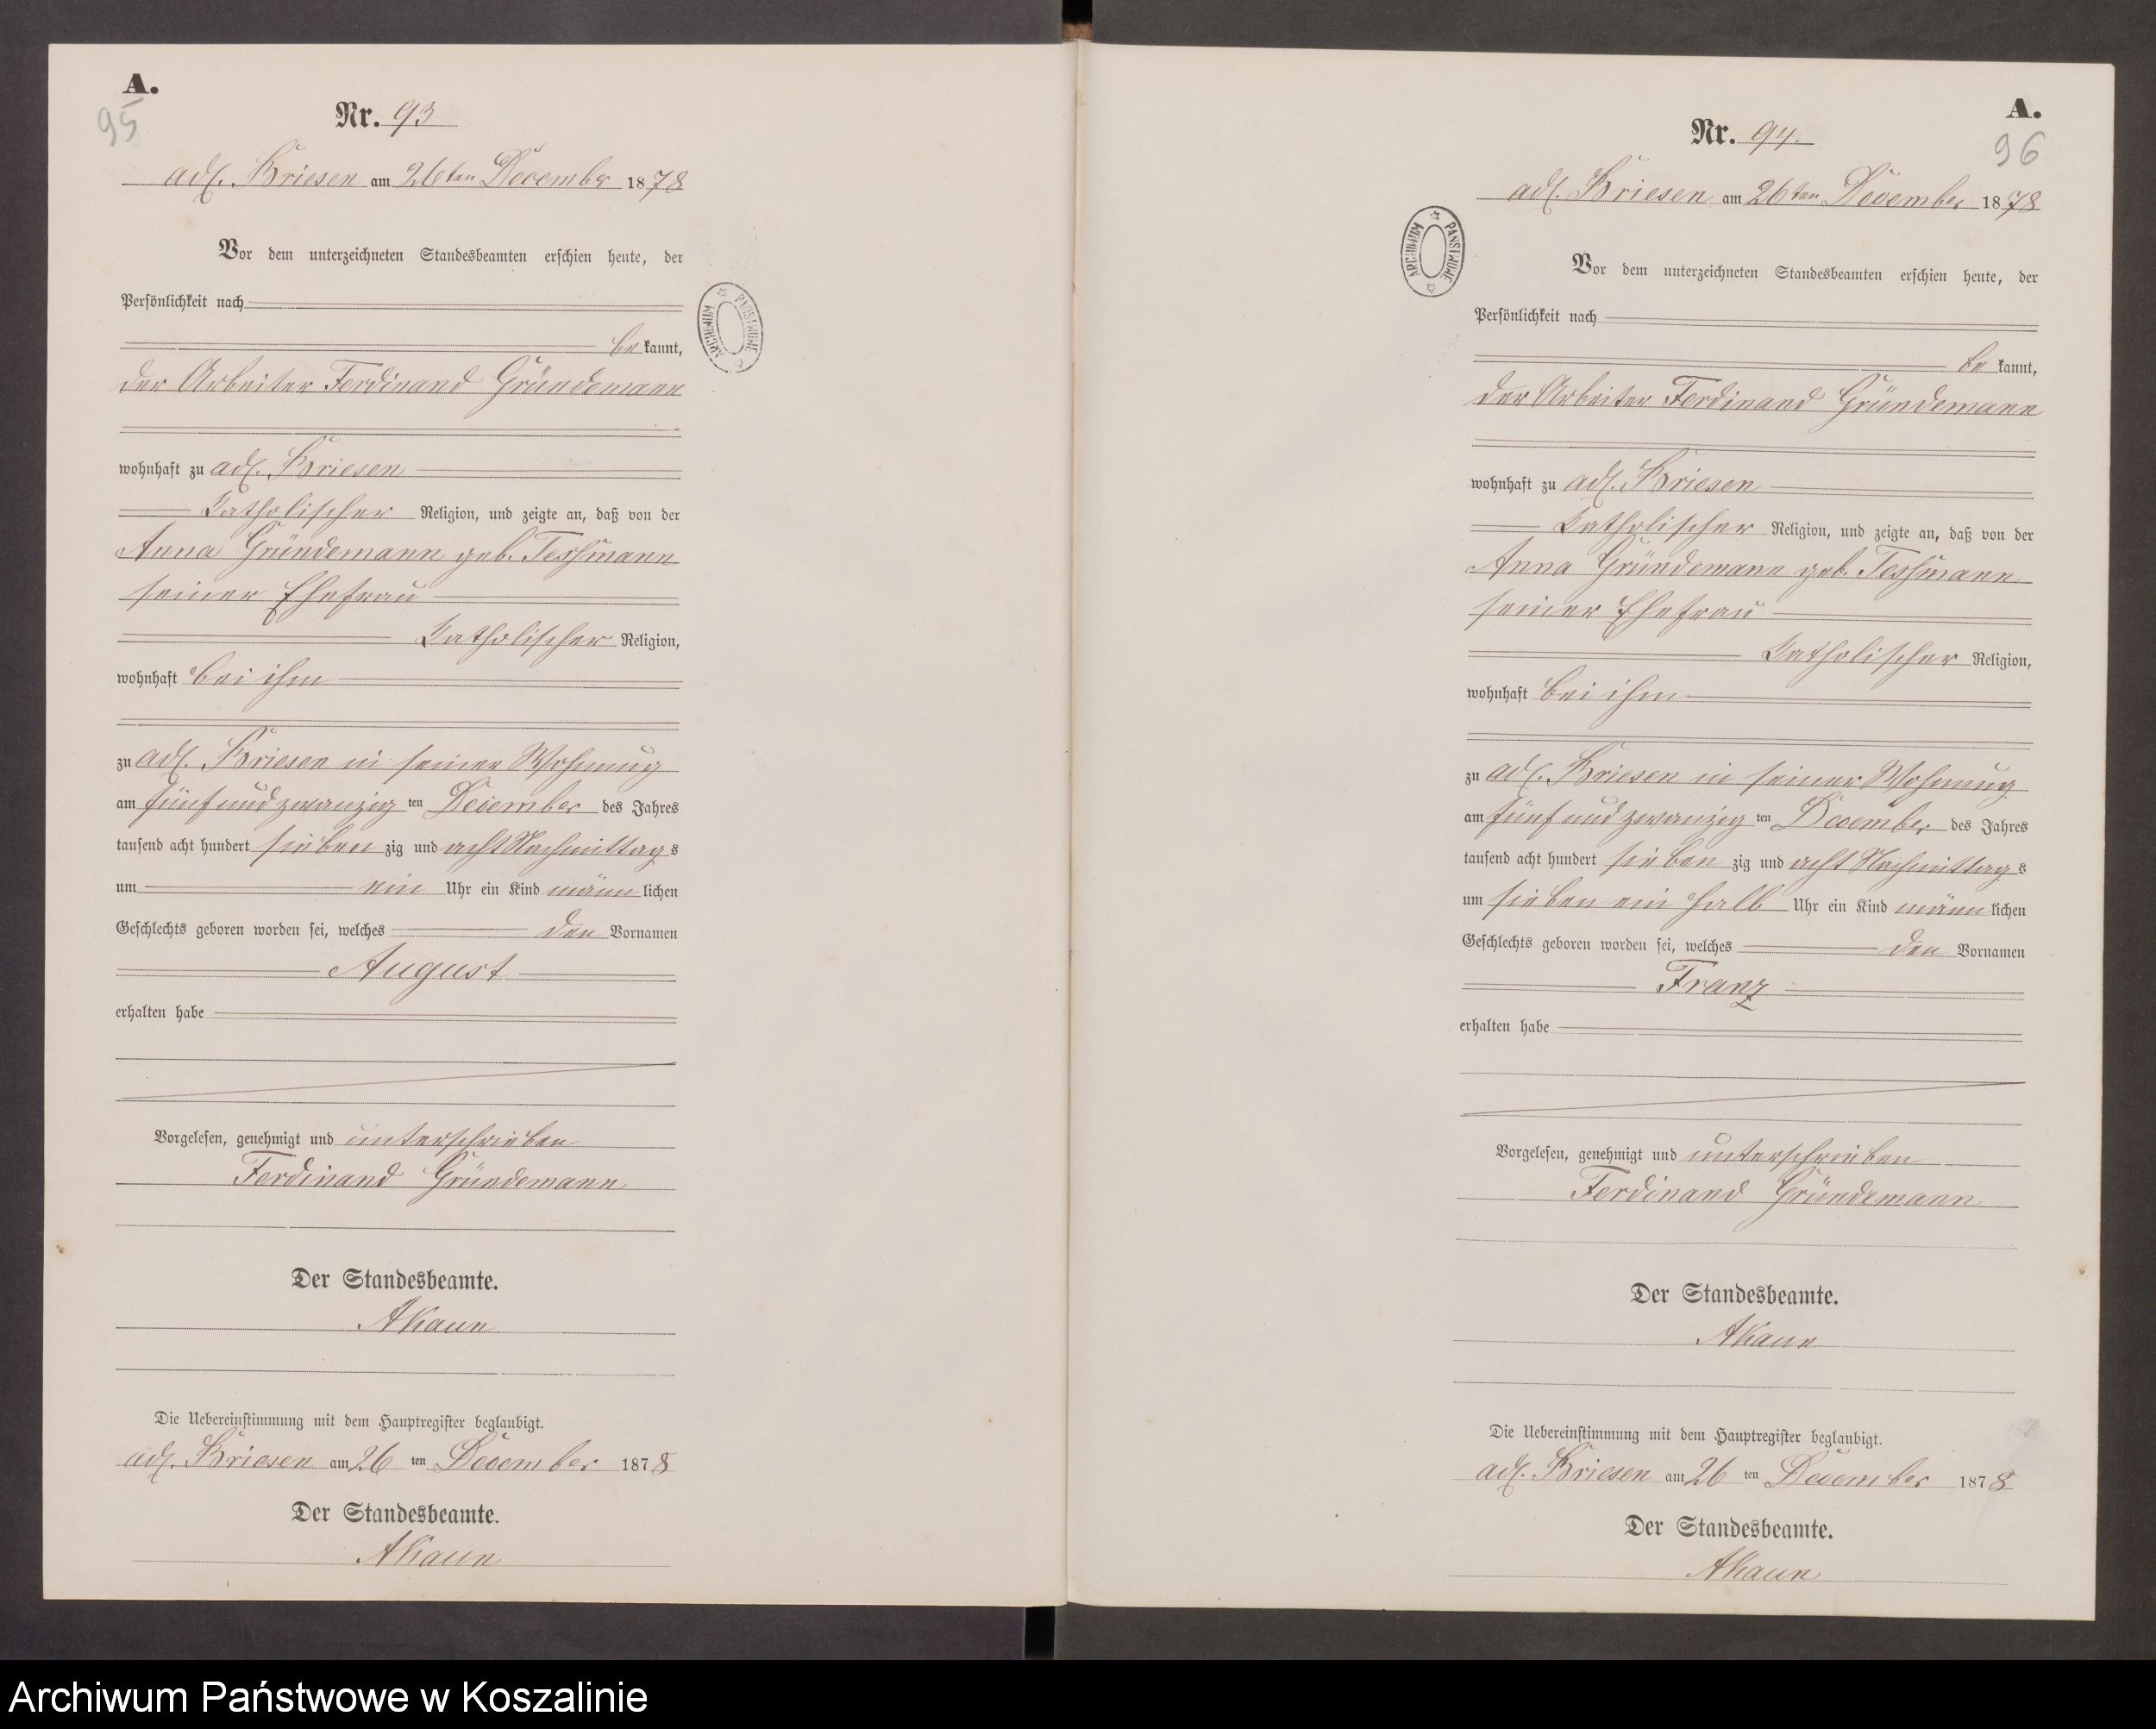 A.
95
Nr. 93
adl. Briesen am 26ten December 1878
Vor dem unterzeichneten Standesbeamten erschien heute, der
Persönlichkeit nach
bekannt,
der Arbeiter Ferdinand Gründemann
wohnhaft zu adl. Briesen
katholischer Religion, und zeigte an, daß von der
Anna Gründemann geb. Teßmann
seiner Ehefrau
katholischer Religion,
wohnhaft bei ihm
zu adl. Briesen in seiner Wohnung
am fünfundzwanzigten December des Jahres
tausend acht hundert siebenzig und acht Nachmittags
um ein Uhr ein Kind männlichen
Geschlechts geboren worden sei, welches den Vornamen
August
erhalten habe
Vorgelesen, genehmigt und unterschrieben
Ferdinand Gründemann
Der Standesbeamte.
Die Uebereinstimmung mit dem Hauptregister beglaubigt.
adl. Briesen am 26 ten December 1878
Der Standesbeamte.
ARCHIWUM PAŃSTWOWE
A.
96
Nr. 94.
adl. Briesen am 26ten December 1878
Vor dem unterzeichneten Standesbeamten erschien heute, der
Persönlichkeit nach
bekannt,
der Arbeiter Ferdinand Gründemann
wohnhaft zu adl. Briesen
katholischer Religion, und zeigte an, daß von der
Anna Gründemann geb. Teßmann
seiner Ehefrau
katholischer Religion,
wohnhaft bei ihm
zu adl. Briesen in seiner Wohnung
am fünfundzwanzigten December des Jahres
tausend acht hundert siebenzig und acht Nachmittags
um sieben ein halb Uhr ein Kind männlichen
Geschlechts geboren worden sei, welches den Vornamen
Franz
erhalten habe
Vorgelesen, genehmigt und unterschrieben
Ferdinand Gründemann
Der Standesbeamte.
Die Uebereinstimmung mit dem Hauptregister beglaubigt.
adl. Briesen am 26 ten December 1878
Der Standesbeamte.
ARCHIWUM PAŃSTWOWE
Archiwum Państwowe w Koszalinie